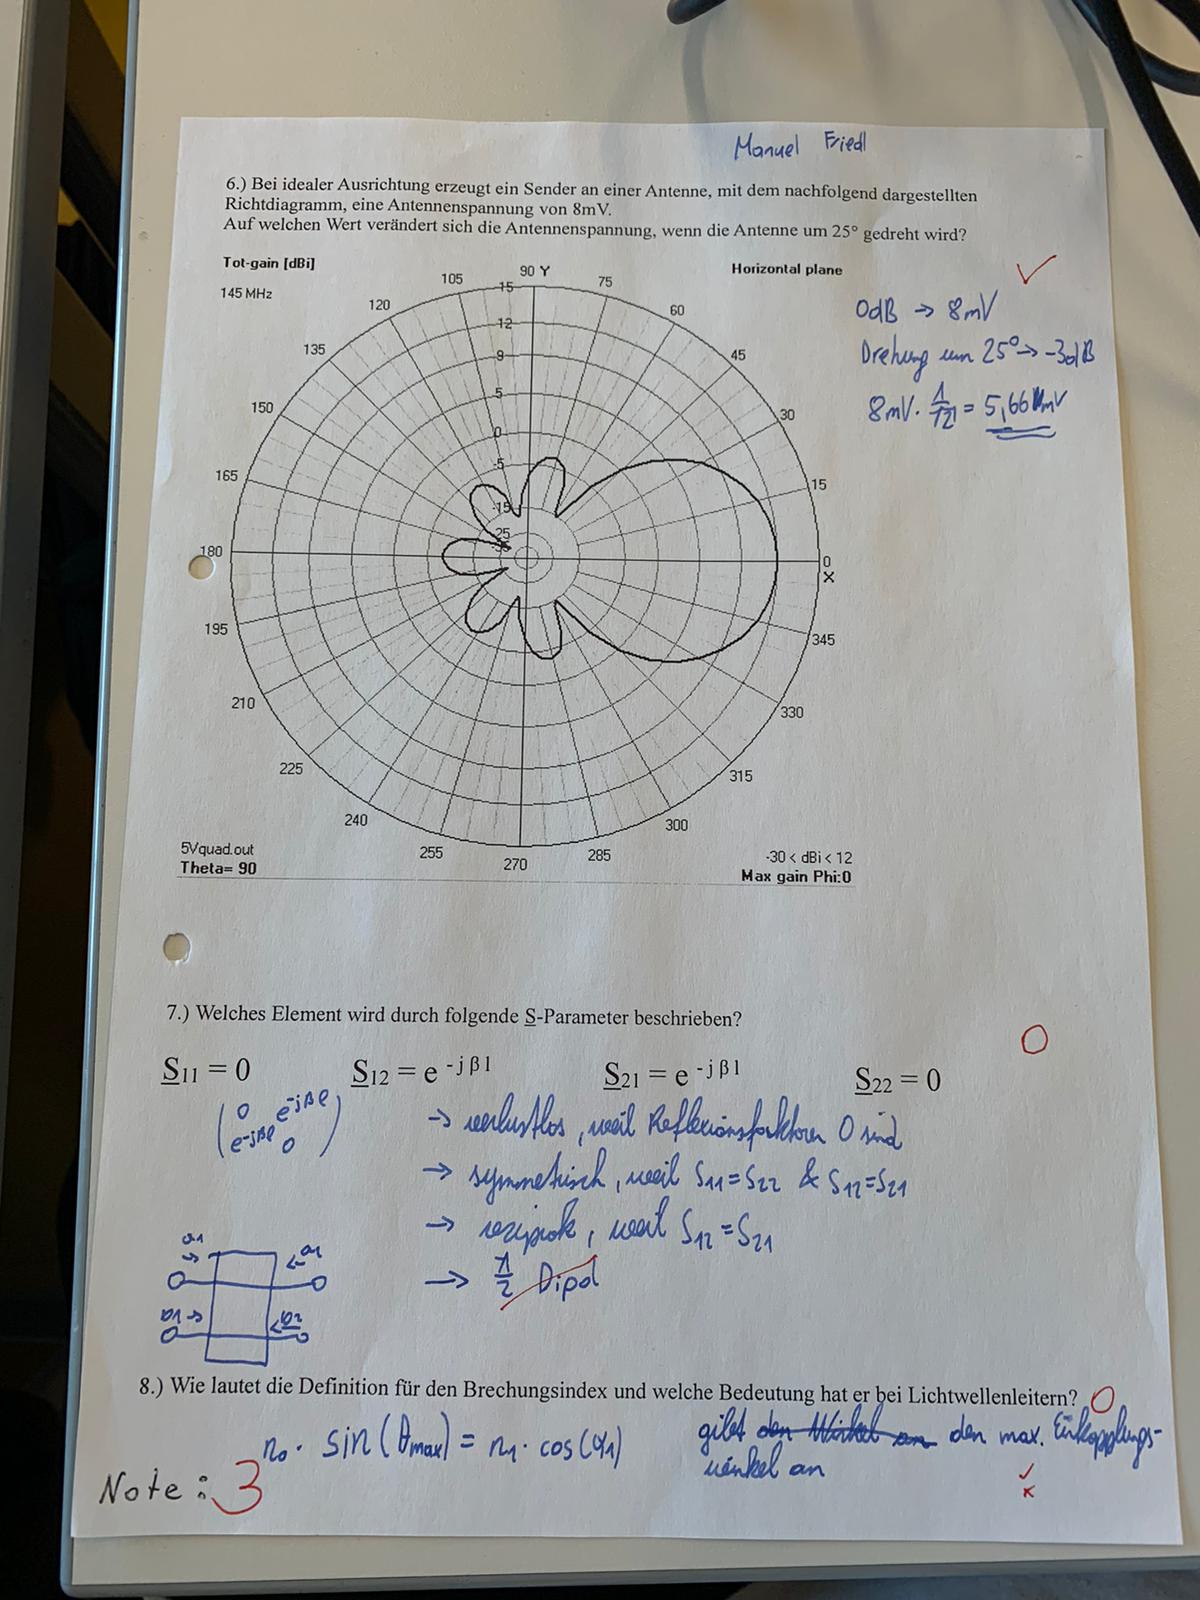 Manuel Friedl
6.) Bei idealer Ausrichtung erzeugt ein Sender an einer Antenne, mit dem nachfolgend dargestellten
Richtdiagramm, eine Antennenspannung von 8mV.
Auf welchen Wert verändert sich die Antennenspannung, wenn die Antenne um 25° gedreht wird?
Tot-gain [dBi]
145 MHz
Horizontal plane
90 Y
105
75
120
60
135
45
150
30
165
15
180
0
X
195
345
210
330
225
315
240
300
255
285
270
15
12
9
5
0
-5
-15
-25
5Vquad.out
Theta= 90
-30 < dBi < 12
Max gain Phi:0
0dB → 8mV
Drehung um 25° → -3dB
8mV · 1/√2 = 5,66 mV
7.) Welches Element wird durch folgende S-Parameter beschrieben?
S11 = 0 S12 = e -jβl S21 = e -jβl S22 = 0
0 e-jβl
e-jβl 0
→ verlustlos, weil Reflexionsfaktoren 0 sind
→ symmetrisch, weil S11=S22 & S12=S21
→ reziprok, weil S12=S21
→ λ/2 Dipol
a1
a1
b1
b2
8.) Wie lautet die Definition für den Brechungsindex und welche Bedeutung hat er bei Lichtwellenleitern?
n0 · sin(θmax) = n1 · cos(α1)
gibt den Winkel an den max. Einkopplungs-
winkel an
Note: 3